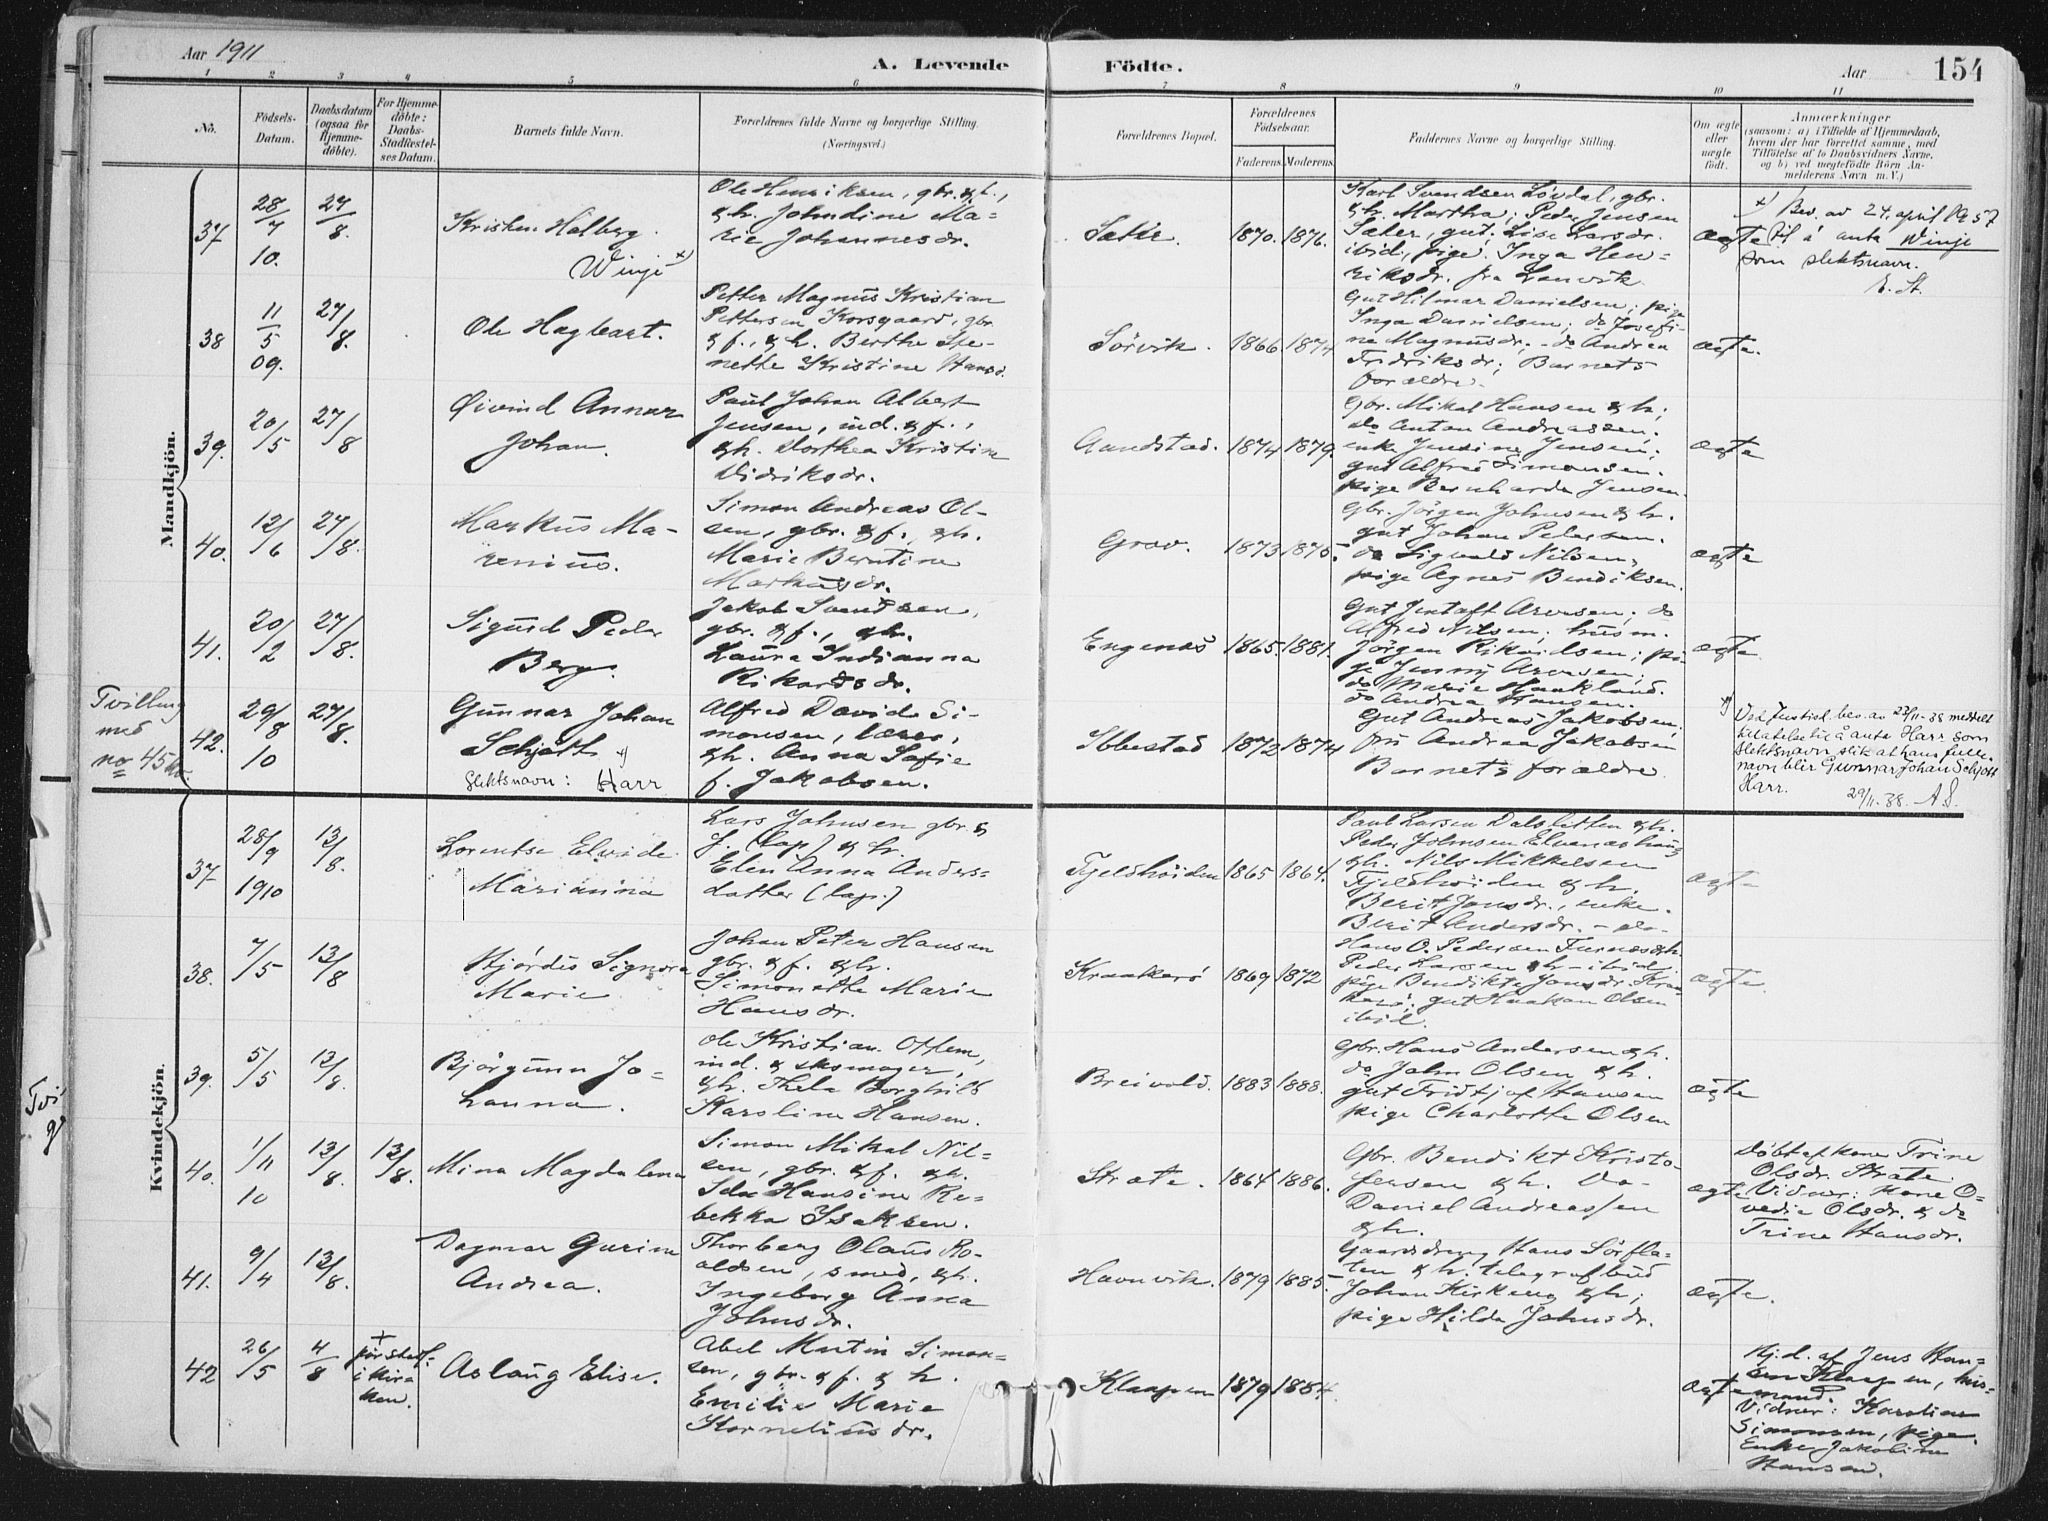 Aar 1911
A. Levende
Födte.
Aar
154
1 2 3 4 5 6 7 8 9 10 11
No.
Födsels-
Datum.
Daabsdatum
(ogsaa for
Hjemme-
döbte).
For Hjemme-
döbte:
Daabs-
Stadfæstel-
ses Datum.
Barnets fulde Navn.
Forældrenes fulde Navne og borgerlige Stilling.
(Næringsvei.)
Forældrenes Bopæl.
Forældrenes
Födselsaar.
Faderens.
Moderens.
Faddernes Navne og borgerlige Stilling.
Om ægte
eller
uægte
födt.
Anmærkninger
(saasom: a) i Tilfælde af Hjemmedaab,
hvem der har forrettet samme, med
Tilföielse af to Daabsvidners Navne,
og b) ved uægtefödte Börn An-
melderens Navn m. V.)
Mandkjön.
37
28/7
10.
27/8.
Kristen Halberg
Winje x)
Ole Henriksen, gbr. & f.,
& h. Johndine Ma-
rie Johannesdr.
Sætter.
1870. 1876.
Karl Svendsen Lövdal, gbr.
& h. Martha; Peder Jensen
Sæter, gut; Lise Larsdr.
ibid, pige. Inga Hen-
riksdr. fra Lenvik
ægte
x) Bev. av 24. april 1957
til å anta Winje
som slektsnavn.
E. St.
38
11/5
09.
27/8.
Ole Hagbart.
Petter Magnus Kristian
Pettersen Korsgaard, gbr.
& f., & h. Berthe Ste-
nette Kristine Hansd.
Sörvik.
1866. 1874
Gut Hilmar Danielsen; pige
Inga Danielsen; do Josefi-
ne Magnusdr; - do Andrea
Fridriksdr; Barnets
forældre.
ægte.
39.
20/5
27/8
Øivind Annar
Johan.
Paul Johan Albert
Jensen, ind. & f.,
& h. Dorthea Kristine
Didriksdr.
Aandstad.
1874 1879.
Gbr. Mikal Hansen & h;
do Anton Andreassen;
enke Jensine Jensen;
gut Alfred Simonsen.
pige Bernharda Jensen.
ægte
40.
12/6
27/8.
Markus Ma-
renius.
Simon Andreas Ol-
sen, gbr. & f., & h.
Marie Berntine
Markusdr.
Grov.
1873 1875.
Gbr. Jörgen Johnsen & h.
gut Johan Pedersen.
do Sigvald Nilsen,
pige Agnes Bendiksen.
ægte
41.
20/2
27/8.
Sigurd Peder
Berg.
Jakob Svendsen,
gbr. & f., & h.
Laura Indianna
Rikardsdr.
Engenes
1865. 1881.
Gut Jentoft Arnesen; do
Alfred Nilsen; husm.
Jörgen Rikailsen; pi-
ge Jenny Arnsen;
do Marie Haakland.
do Andrea Hansen.
ægte.
Tvilling
med
no 45
42.
29/8
10
27/8.
Gunnar Johan
Schjött x)
slektsnavn: Harr
Alfred David Si-
monsen, lærer,
& h. Anna Sofie
f. Jakobsen.
Ibbestad
1872 1874
Gut Andreas Jakobsen,
fru Andrea Jakobsen
Barnets forældre.
x) Ved Justisd. bev. av 22/11-38 meddelt
tillatelse til å anta Harr som
slektsnavn slik at hans fulle
navn blir Gunnar Johan Schjött
Harr. 29/11.38. A.S.
Kvindekjön.
37
28/9
1910
13/8.
Lorentse Elvide
Marianna
Lars Johnsen gbr &
f. (lap) & h.
Elen Anna Anders-
datter (lap.)
Fjeldhöiden
1865 1864.
Paul Larsen Dalsletten & h.
Peder Johnsen Elvenæshaug
& h. Nils Mikkelsen
Fjeldhöiden & h.
Berit Jonsdr., enke.
Berit Andersdr. - do-
ægte
38.
7/5
13/8
Hjördis Signora
Marie
Johan Peter Hansen
gbr. & f. & h.
Simonette Marie
Hansdr.
Kraakerö
1869 1872
Hans O. Pedersen Furnes & h.
Peder Larsen & h - ibid.
pige Bendikte Jonsdr. Kraa-
kerö; gut Haakon Olsen
ibid.
ægte.
39.
5/5
13/8.
Björgunn Jo-
hanna.
Ole Kristian Ottem,
ind. & skomager,
& h. Thela Borghild
Karoline Hansen.
Breivold.
1883 1888.
Gbr. Hans Andersen & h.
do John Olsen & h.
gut Fridtjof Hansen
pige Charlotte Olsen
ægte
40.
1/11
10
13/8.
13/8.
Mina Magdalena
Simon Mikal Nil-
sen, gbr. & f. & h.
Ida Hansine Re-
bekka Isaksen.
Strate.
1864 1886.
Gbr. Bendikt Kristo-
fersen & h. Do-
Daniel Andreassen
& h.
ægte
Döbt af kone Trine
Olsdr. Strate.
Vidner: kone O-
vedia Olsdr. & do
Trine Hansdr.
41.
9/4
13/8.
Dagmar Gurine
Andrea.
Thorberg Olaus Ro-
aldsen, smed, & h.
Ingeborg Anna
Johnsdr.
Havnvik.
1879 1885.
Gaardsdreng Hans Sörfla-
ten & h. telegrafbud
Johan Kirkeng & h;
pige Hilda Johnsdr.
ægte.
42
26/5
4/8
+
för stadf.
i kir-
ken.
Aslaug Elise.
Abel Martin Simon-
sen, gbr. & f. & h.
Emilie Marie
Korneliusdr.
Klaapen
1879 1884.
ægte
Hj.d. af Jens Han-
sen Klaapen, hus-
mand.
Vidner: Karoline
Simonsen, pige.
Enke Jakobine
Hansen.
Tvi